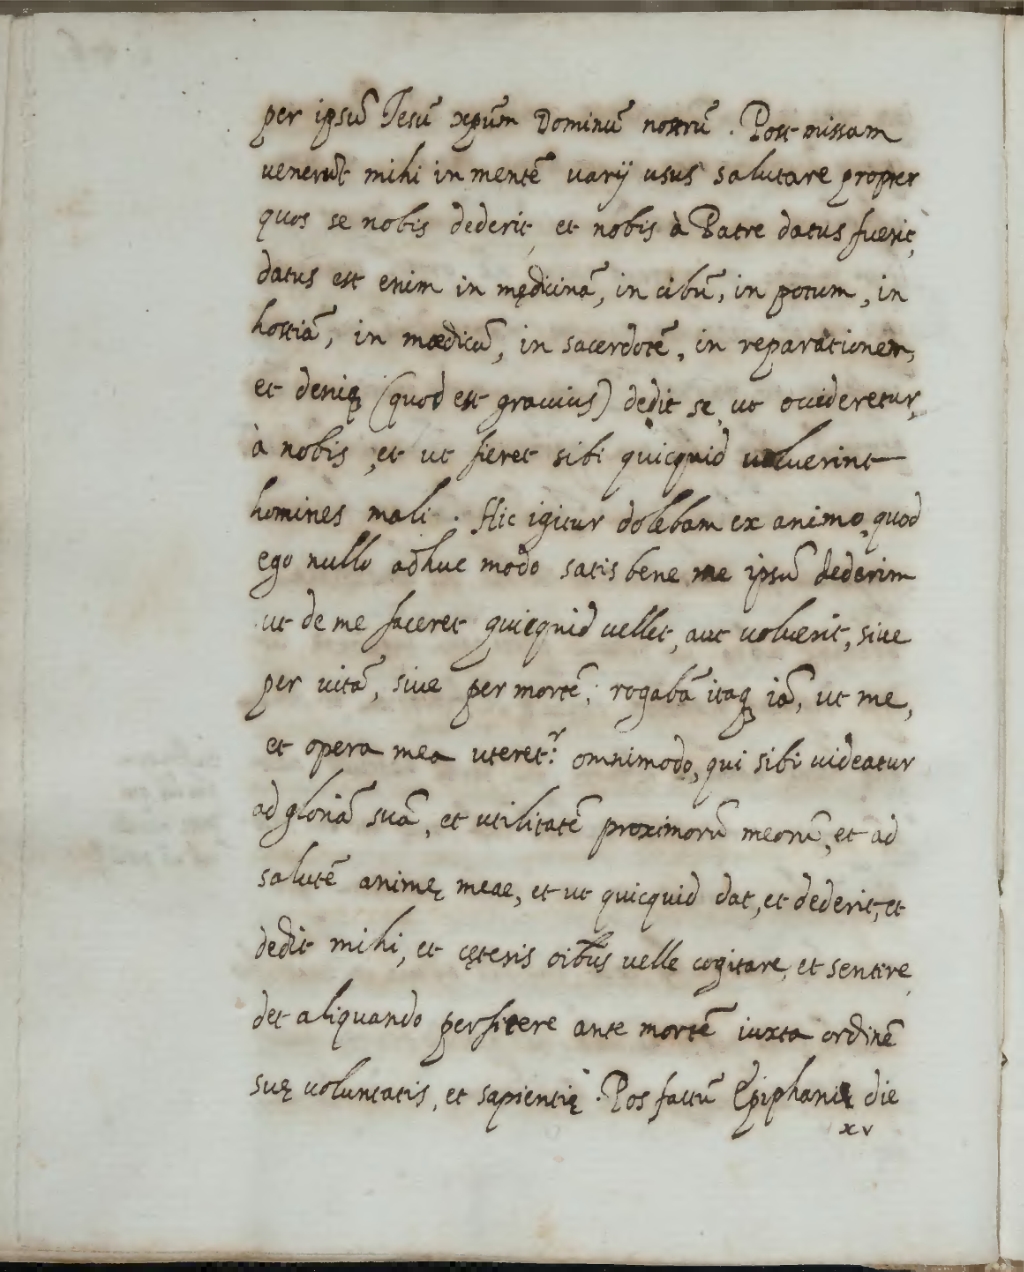 per ipsū Jesū xpūm Dominū nostrū. Post missam
venerūt mihi in mentē varij usus salutare propter
quos se nobis dederit, et nobis à Patre datus fuerit,
datus est enim in mędicinā, in cibū, in potum, in
hostiā, in mœdicū, in sacerdotē, in reparationem,
et deniq; (quod est gravius) dedit se, ut occideretur,
à nobis, et ut fieret sibi quicquid voluerint
homines mali. Hic igitur dolebam ex animo, quod
ego nullo adhuc modo satis bene me ipsū dederim
ut de me faceret quicquid vellet, aut voluerit, sive
per vitā, sive per mortē; rogabā itaq; iā, ut me,
et opera mea uteret.r omnimodo, qui sibi videatur
ad gloriā suā, et utilitatē proximorū meorū, et ad
salutē animę meae, et ut quicquid dat, et dederit, et
dedit mihi, et cęteris oībus velle cogitare, et sentire
det aliquando perficere ante mortē iuxta ordinē
suę voluntatis, et sapientię. Pos factū Epiphanię die
xv